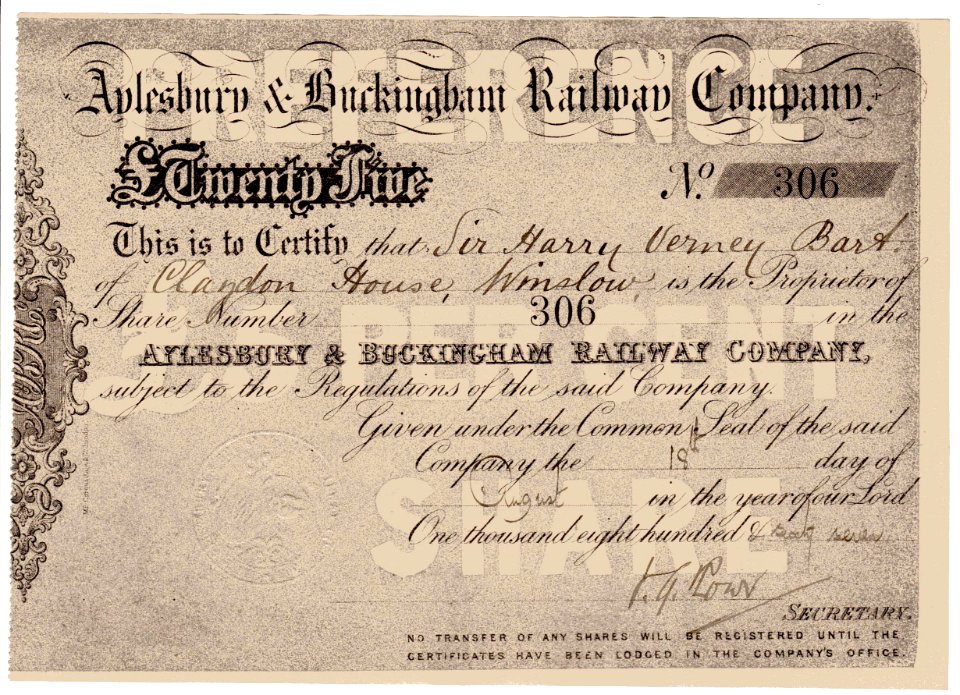 PREFERENCE
Aylesbury & Buckingham Railway Company.
£Twenty Five
No. 306
This is to Certify that Sir Harry Verney Bart
of Claydon House, Winslow, is the Proprietor of
Share Number 306 in the
PER CENT
AYLESBURY & BUCKINGHAM RAILWAY COMPANY,
subject to the Regulations of the said Company.
Given under the Common Seal of the said
Company the 18th day of
August in the year of our Lord
SHARE
One thousand eight hundred & sixty seven
SECRETARY.
NO TRANSFER OF ANY SHARES WILL BE REGISTERED UNTIL THE
CERTIFICATES HAVE BEEN LODGED IN THE COMPANY'S OFFICE.